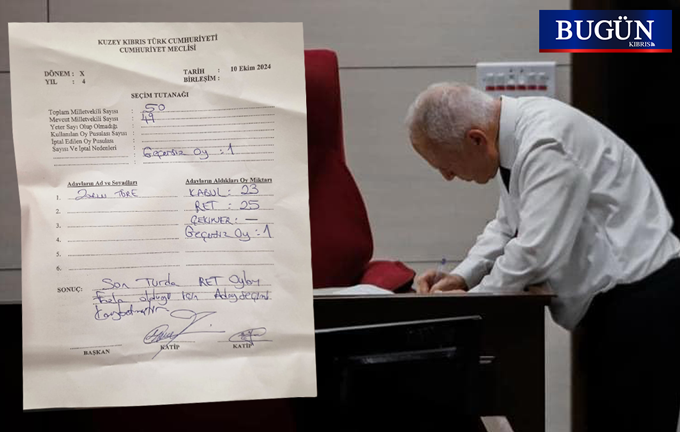 BUGÜN
KIBRIS
KUZEY KIBRIS TÜRK CUMHURİYETİ
CUMHURİYET MECLİSİ
DÖNEM : X
TARİH : 10 Ekim 2024
YIL : 4
BİRLEŞİM :
SEÇİM TUTANAĞI
Toplam Milletvekili Sayısı : 50
Mevcut Milletvekili Sayısı : 49
Yeter Sayı Olup Olmadığı :
Kullanılan Oy Pusulası Sayısı :
İptal Edilen Oy Pusulası
Sayısı Ve İptal Nedenleri : Geçersiz Oy : 1
Adayların Ad ve Soyadları
Adayların Aldıkları Oy Miktarı
1. TÖRE KABUL : 23
2. RET : 25
3. ÇEKİMSER : —
4. Geçersiz Oy : 1
5.
6.
SONUÇ: Son Turda RET Oyları
fazla olduğu için Aday seçimi
kaybetmiştir
BAŞKAN KATİP KATİP